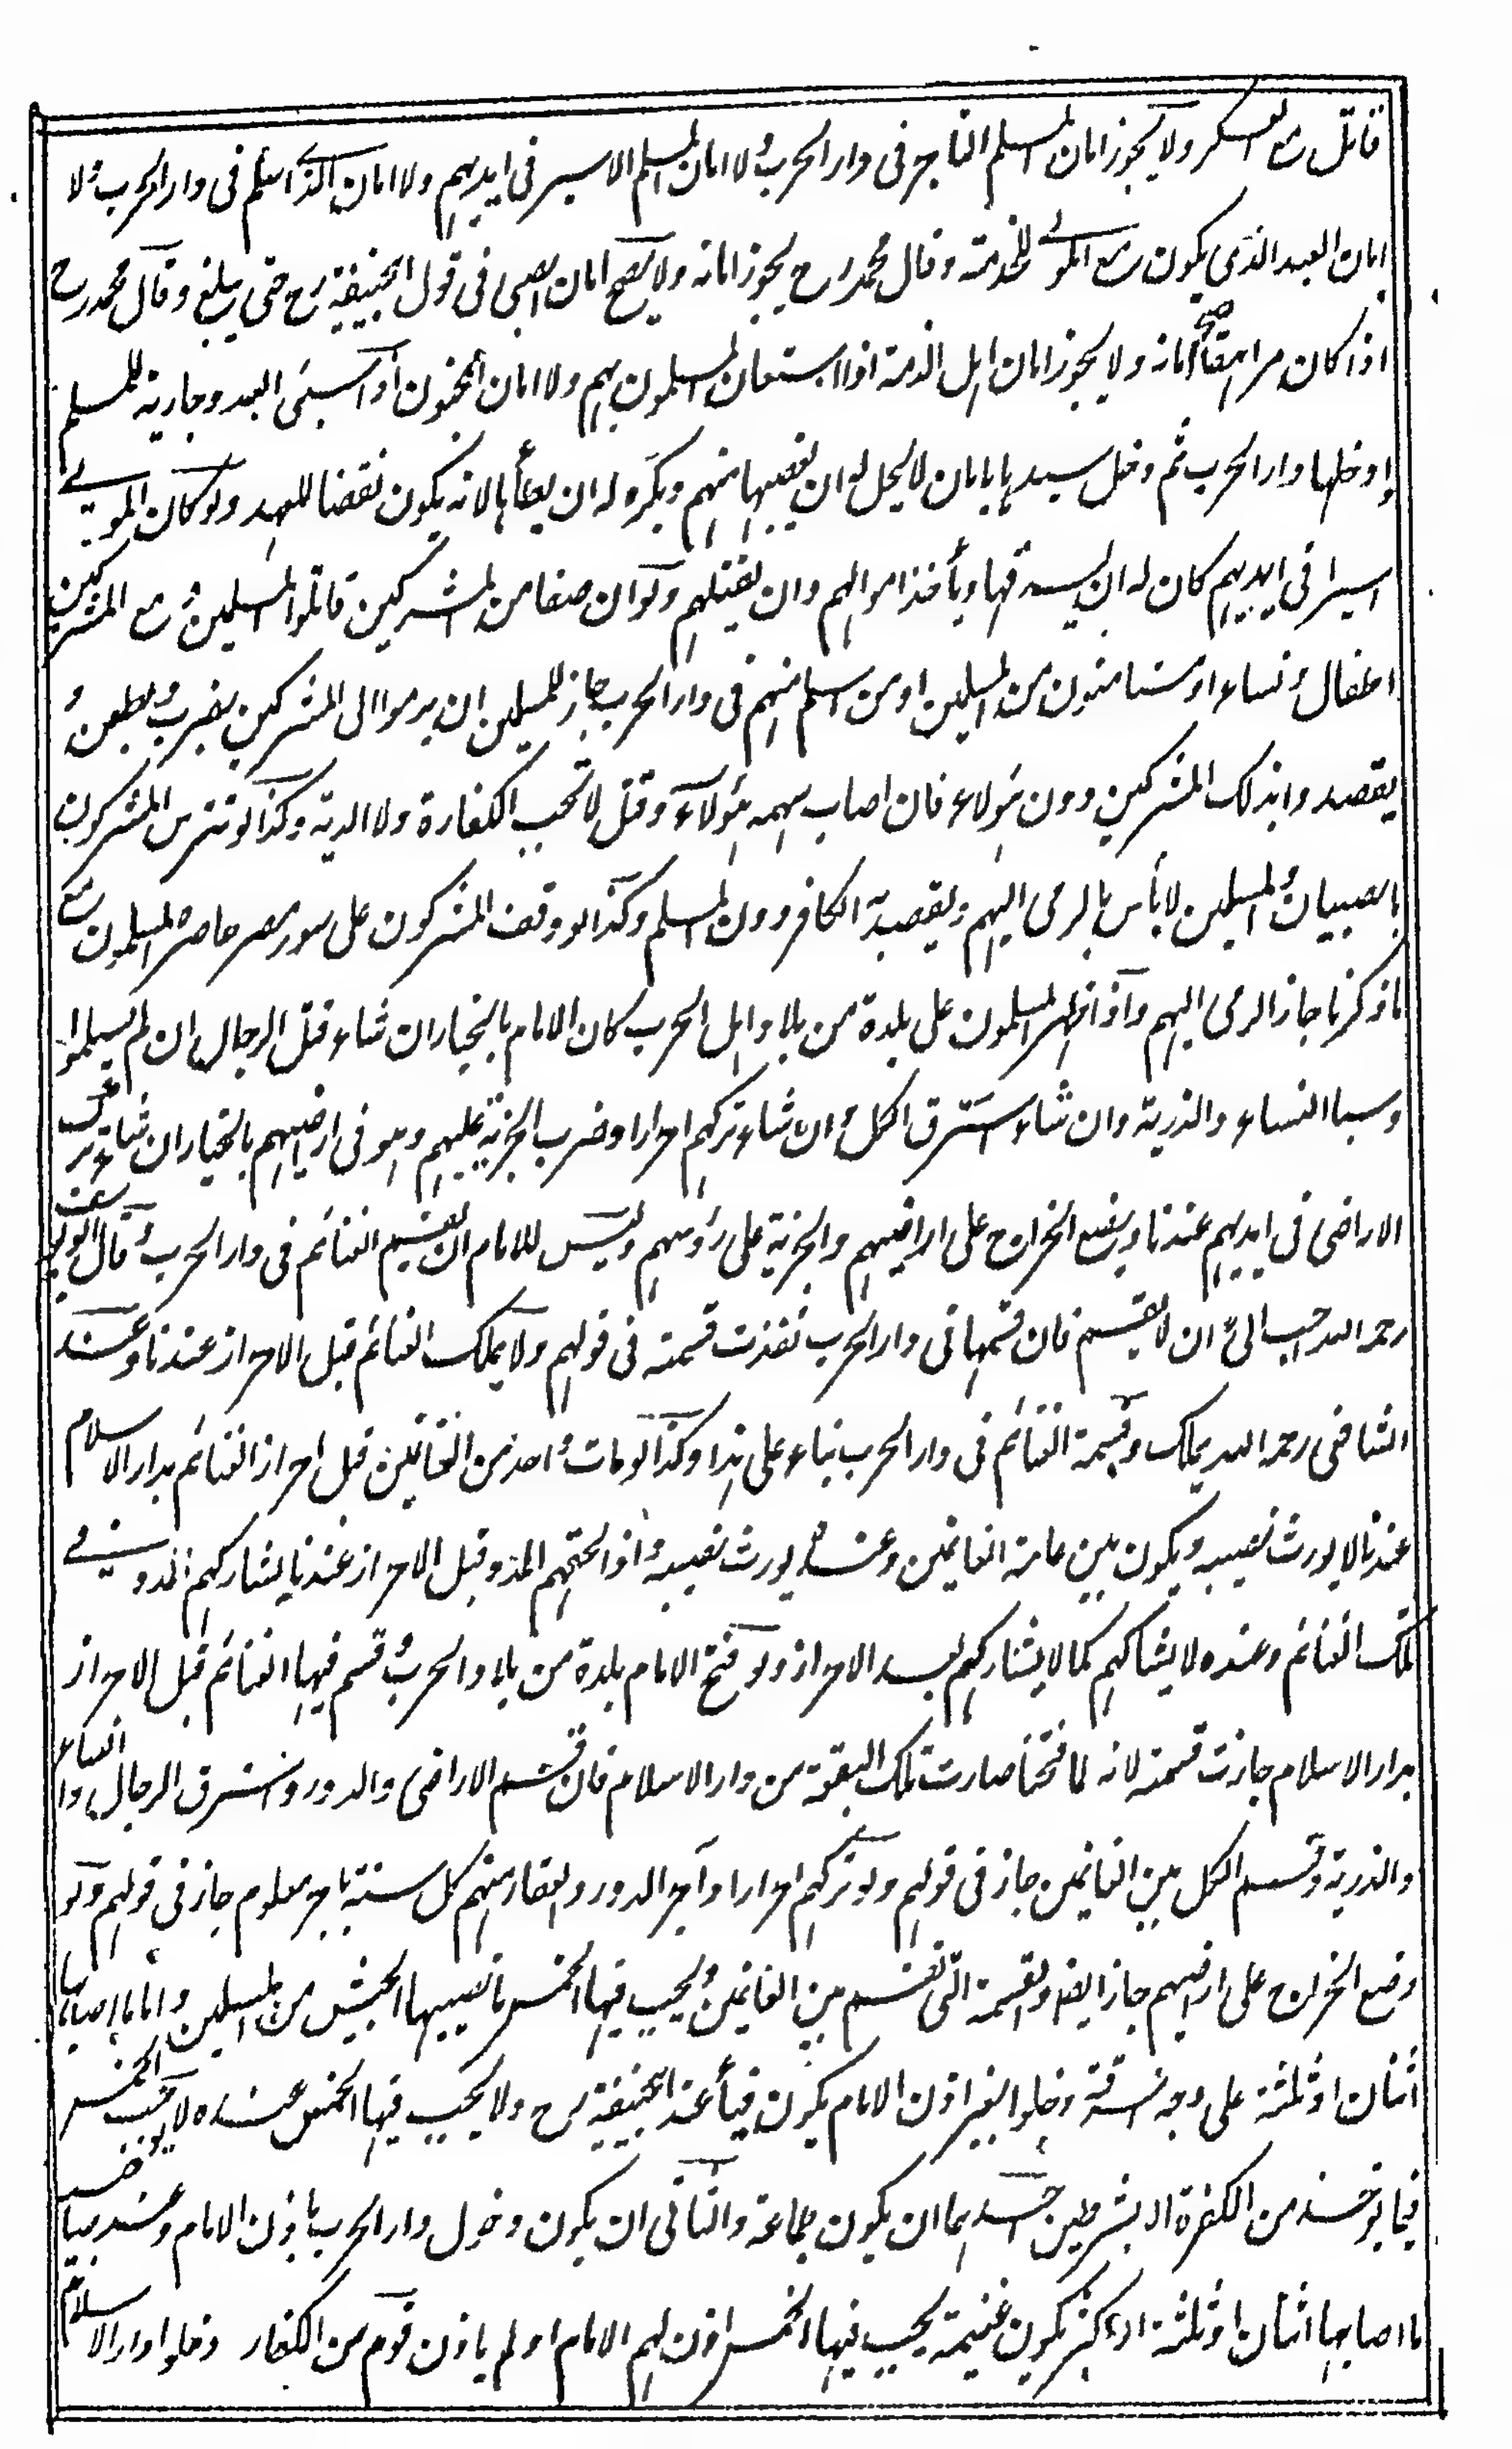 قاتل مع العسكر ولا يجوز امان المسلم التاجر فى دار الحرب ولا امان المسلم الاسير فى ايديهم ولا امان الذى اسلم فى دار الحرب ولا
امان العبد الذى يكون مع المولى لخدمته وقال محمد رح يجوز امانه ولا يصح امان الصبى فى قول ابيحنيفة رح حتى يبلغ وقال محمد رح
اذا كان مراهقا صح امانه ولا يجوز امان اهل الذمة اذا استعان المسلمون بهم ولا امان المجنون اذا سبى العدو جارية للمسلم
وادخلها دار الحرب ثم دخل سيدها بامان لا يحل له ان يغصبها منهم ويكره له ان يطأها لانه يكون نقضا للعهد ولو كان المولى
اسيرا فى ايديهم كان له ان يسرقها ويأخذ اموالهم وان يقتلهم ولو ان صفا من المشركين قاتلوا المسلمين ومع المشركين
اطفال ونساء او مستامنون من المسلمين او من اسلم منهم فى دار الحرب جاز للمسلمين ان يرموا الى المشركين بضرب وطعن و
يقصدوا بذلك المشركين دون هؤلاء فان اصاب سهمه هؤلاء وقتل لا تجب الكفارة ولا الدية وكذا لو تترس المشركون
بالصبيان والمسلمين لا بأس بالرمى اليهم ويقصد به الكافر دون المسلم وكذا لو وقف المشركون على سور مصر حاصره المسلمون مع
ما ذكرنا جاز الرمى اليهم واذا ظهر المسلمون على بلدة من بلاد اهل الحرب كان الامام بالخيار ان شاء قتل الرجال ان لم يسلموا
وسبا النساء والذرية وان شاء استرق الكل وان شاء تركهم احرارا وضرب الجزية عليهم وهو فى ارضيهم بالخيار ان شاء ترك
الاراضى فى ايديهم عندنا ويضع الخراج على اراضيهم والجزية على رؤسهم وليس للامام ان يقسم الغنائم فى دار الحرب وقال ابو يوسف
رحمه الله احب الى ان لا يقسم فان قسمها فى دار الحرب نفذت قسمته فى قولهم ولا يملك الغنائم قبل الاحراز عندنا وعند
الشافعى رحمه الله يملك وقسمة الغنائم فى دار الحرب بناء على هذا وكذا لو مات واحد من الغانمين قبل احراز الغنائم بدار الاسلام
عندنا لا يورث نصيبه ويكون بين عامة الغانمين وعنده يورث نصيبه واذا لحقهم المدد قبل الاحراز عندنا يشاركهم المدد فى
تلك الغنائم وعنده لا يشاركهم كما لا يشاركهم بعد الاحراز ولو فتح الامام بلدة من بلاد الحرب وقسم فيها الغنائم قبل الاحراز
بدار الاسلام جازت قسمته لانه لما فتحها صارت تلك البقعة من دار الاسلام فان قسم الاراضى والدور واسترق الرجال والنساء
والذرية وقسم الكل بين الغانمين جاز فى قولهم ولو تركهم احرارا وآجر الدور والعقار منهم كل سنة باجر معلوم جاز فى قولهم ولو
وضع الخراج على ارضهم جاز ايضا والقسمة التى تقسم بين الغانمين ويجب فيها الخمس ما يصيبها الجيش من المسلمين واما ما اصابها
اثنان او ثلثة على وجه السرقة دخلوا بغير اذن الامام يكون فيأ عند ابيحنيفة رح ولا يجب فيها الخمس عنده لا يجب الخمس
فيما يؤخذ من الكفرة الا بشرطين احدهما ان يكون جماعة والثانى ان يكون دخول دار الحرب باذن الامام وعند صاحبيه
ما اصابها اثنان او ثلثة او اكثر يكون غنيمة يجب فيها الخمس اذن لهم الامام او لم ياذن قوم من الكفار دخلوا دار الاسلام